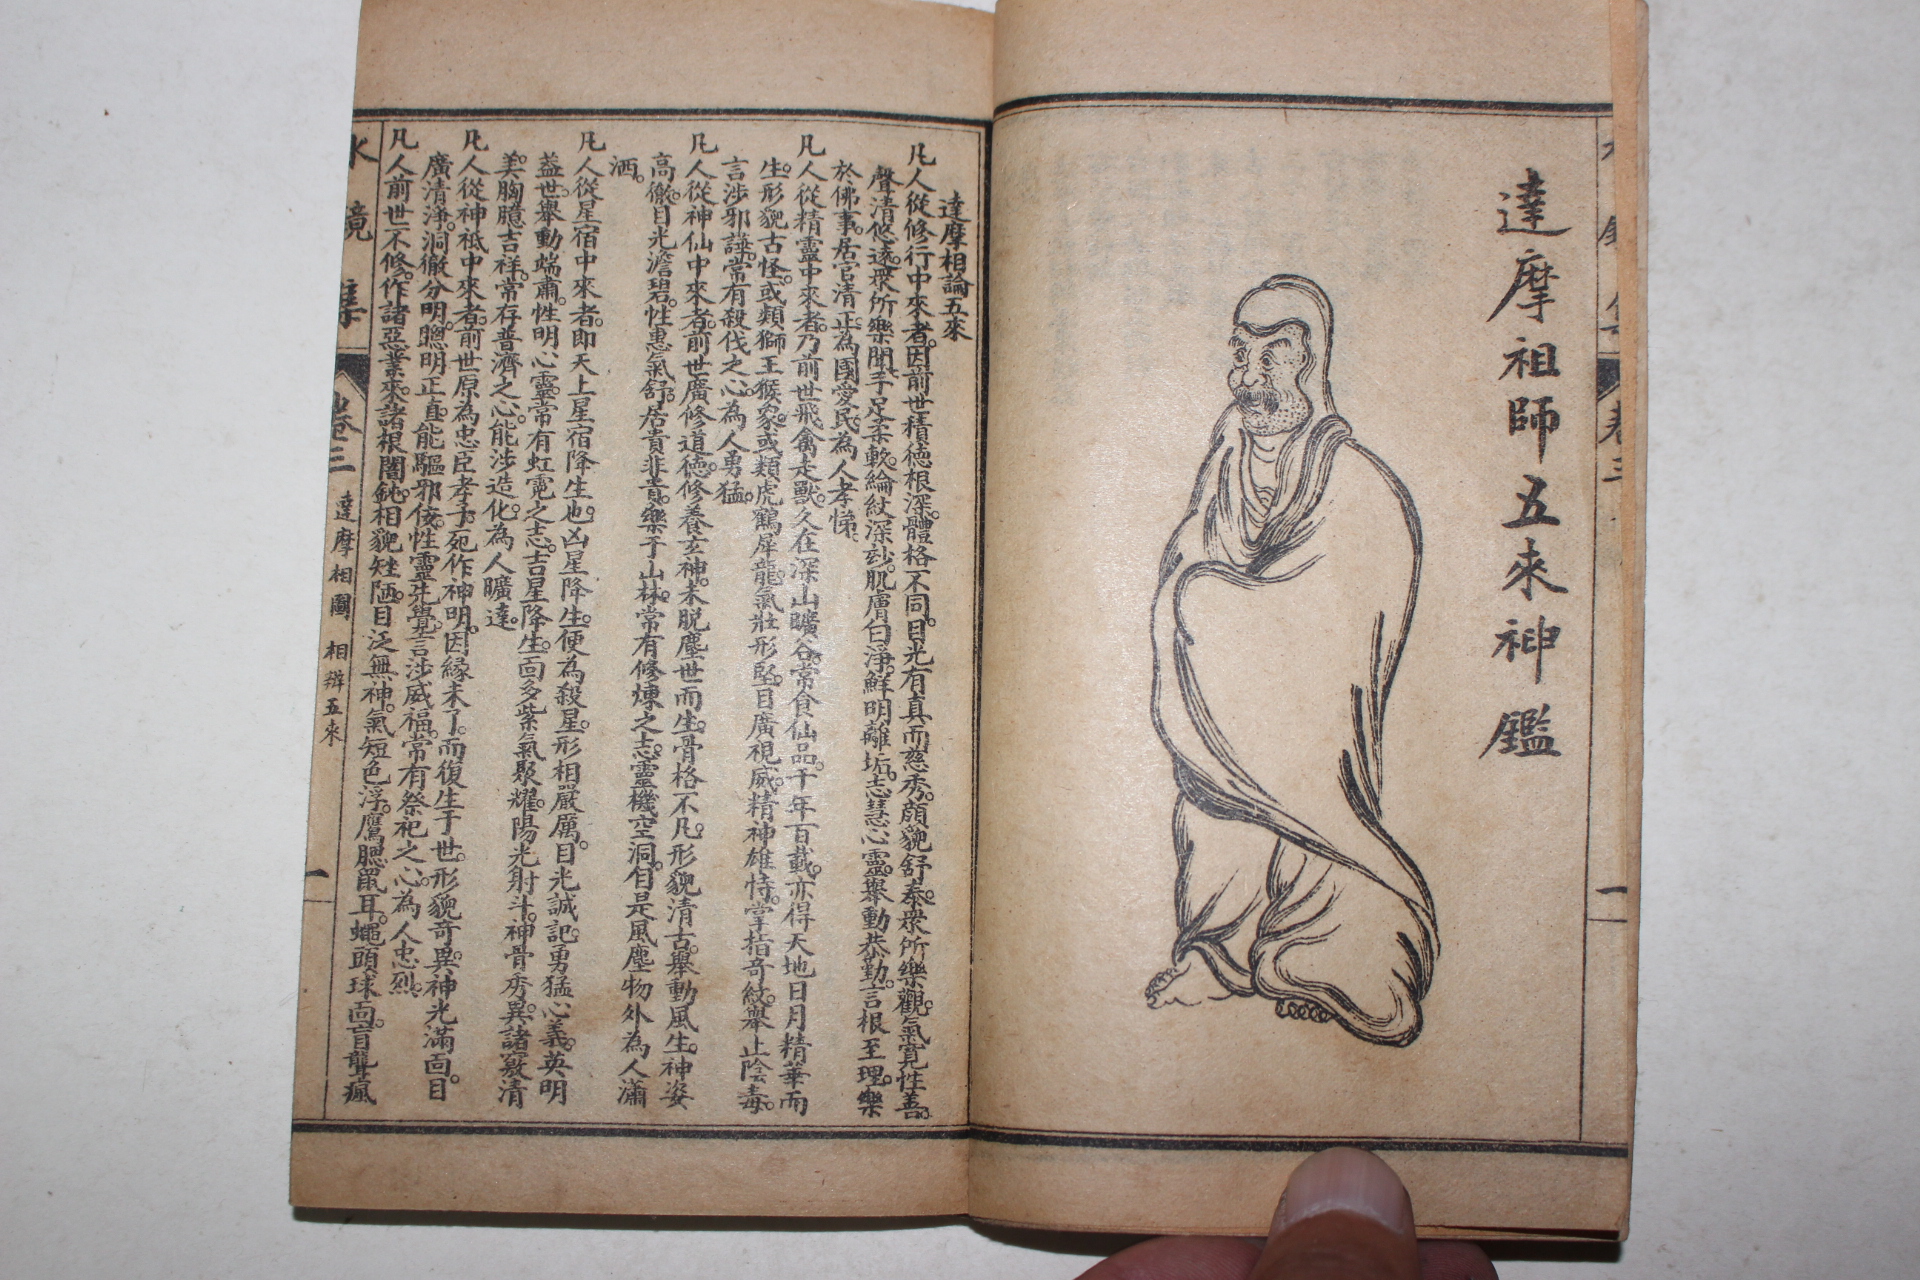 達摩祖師五來神鑑
達摩相論五來
凡人從修行中來者。因前世積德根深。體格不同。目光有真而慈秀。顔貌舒泰。衆所樂觀。氣寬性善。
聲清悠遠。衆所樂聞。手足柔軟。綸紋深玅。肌膚白淨。鮮明離垢。志慧心靈。舉動恭勤。言根至理。樂
於佛事。居官清正。為國愛民。為人孝悌
凡人從精靈中來者。乃前世飛禽走獸。久在深山曠谷。常食仙品。千年百載。亦得天地日月精華而
生。形貌古怪。或類獅王猴象。或類虎鶴犀龍。氣壯形堅。目廣視威。精神雄恃。掌指奇紋。舉止陰毒。
言涉邪謹。常有殺伐之心。為人勇猛。
凡人從神仙中來者。前世廣修道德。修養玄神。未脱塵世而生。骨格不凡。形貌清古。舉動風生。神姿
高徹。目光澹碧。性惠氣舒。居貴非貴。樂于山林。常有修煉之志。靈機空洞。自是風塵物外。為人瀟
洒。
凡人從星宿中來者。即天上星宿降生也。凶星降生。便為殺星。形相嚴厲。目光誠記。勇猛心義。英明
蓋世。舉動端肅。性明心靈。常有虹霓之志。吉星降生。面多紫氣聚耀。陽光射斗。神骨秀異。諸竅清
美。胸臆吉祥。常存普濟之心。能涉造化。為人曠達。
凡人從神祇中來者。前世原為忠臣孝子。死作神明。因緣未了。而復生于世。形貌奇異。神光滿面。目
廣清淨。洞徹分明。聰明正直。能驅邪佞。性靈先覺。言涉威福。常有祭祀之心。為人忠烈。
凡人前世不修。作諸惡業來。諸根闇鈍。相貌矬陋。目泛無神。氣短色浮。鷹腮鼠耳。蠅頭球面。盲聾瘋
水鏡集 卷三 達摩相圖 相辨五來 一